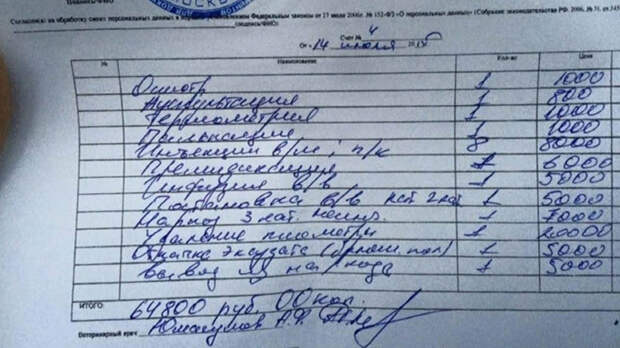 Согласен(а) на обработку своих персональных данных в порядке, установленном Федеральным законом от 27 июля 2006г. № 152-ФЗ «О персональных данных» (Собрание законодательства РФ, 2006, № 31, ст.345
(подпись/ФИО)
Счет № 4
От « 14 июля 201
№ Наименование Кол-во Цена
Осмотр 1 1000
Аускультация 1 800
Термометрия 1 1000
Пальпация 1 1000
Инъекции в/м; п/к 8 8000
Премедикация 1 6000
Инфузия в/в 1 5000
Постановка в/в кат 1 5000
Наркоз 3 кат. 1 7000
Удаление пиометры 1 20000
Откачка эксудата (брюшн. пол) 1 5000
Вывод из наркоза 1 5000
ИТОГО: 64800 руб. 00 коп.
Ветеринарный врач: А.Ф.